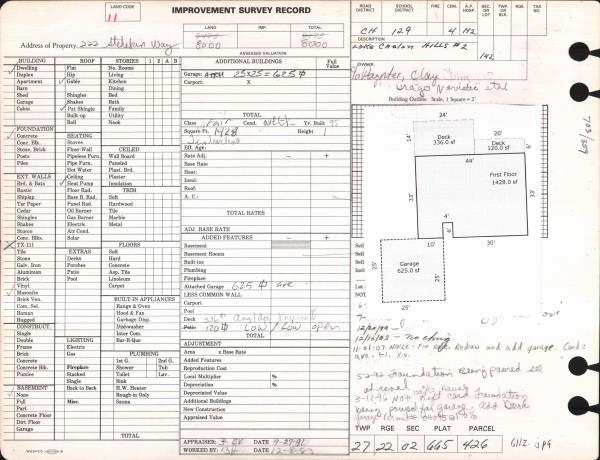 LAND CODE
11
IMPROVEMENT SURVEY RECORD
LAND IMP. TOTAL
8000 8000
Address of Property 222
ASSESSED VALUATION
ROAD DISTRICT SCHOOL DISTRICT FIRE CEM. A.P. HOSP. SEC. OR LOT TWP. OR BLK. RG. TAX NO.
CH 129 4 H2
DESCRIPTION
Lake Chelan Hills #2
142
OWNER
Poynter, Clay
Building Outline: Scale, 1 Square = 2'
BUILDING ROOF STORIES 1 2 A B
Dwelling Flat No. Rooms
Duplex Hip Living
Apartment Gable Kitchen
Barn Dining
Shed Shingles Bed
Garage Shakes Bath
Cabin Family
Built-up Utility
Roll Nook
FOUNDATION
Concrete HEATING
Conc. Blk. Stoves
Stone, Brick Floor-Wall CEILED
Posts Pipeless Furn. Wall Board
Pile Pipe Furn. Paneled
Hot Water Plast. Brd.
EXT. WALLS Ceiling Plaster
Brd. & Bats Heat Pump Insulation
Rustic Floor Rad. TRIM
Shiplap Base B. Rad. Soft
Tar Paper Panel Rad. Hardwood
Cedar Oil Burner Tile
Shingles Gas Burner Marble
Shakes Electric Metal
Stucco Air Cond.
Conc. Blks. Solar
TX-111 FLOORS
Tile EXTRAS Soft
Stone Decks Hard
Galv. Iron Porches Concrete
Aluminum Patio Asp. Tile
Brick Pool Linoleum
Vinyl Carpet
Masonite
Brick Ven. BUILT-IN APPLIANCES
Com. Sel. Range & Oven
Roman Hood & Fan
Rugged Garbage Disp.
CONSTRUCT. Dishwasher
Single Inter Com.
Double LIGHTING Bar-B-Q
Frame Electric
Brick Gas PLUMBING
Concrete 1st G. 2nd G.
Concrete Blk. Fireplace Shower Tub
Pumice Stacked Toilet Lav.
Single Sink
BASEMENT Back to Back H.W. Heater
None Rough-in Only
Full Misc. Sauna
Part
Concrete Floor
Dirt Floor
Garage
TOTAL
ADDITIONAL BUILDINGS Full Value
Garage: Attch 25x25 = 625
Carport: X
TOTAL
Class Fair Cond. Yr. Built 95
Square Ft. 1428 Height 1
Eff. Age:
Rate Adj. — +
Base Rate
Heat:
Insul:
Roof:
A. C.:
TOTAL RATES
ADJ. BASE RATE
ADDED FEATURES — +
Basement
Basement Rooms
Built-ins
Plumbing
Fireplace
Attached Garage 625 ave
LESS COMMON WALL
Carport
Pool
Deck 336
Patio 120 Low / Low open
TOTAL
ADJUSTMENT
Area x Base Rate
Added Features
Reproduction Cost
Local Multiplier %
Depreciation %
Depreciated Value
Additional Buildings
New Construction
Appraised Value
APPRAISER: DATE 9-27-91
WORKED BY: DATE 12-8-83
24'
14'
Deck
336.0 sf
Deck
120.0 sf
6'
44'
First Floor
1428.0 sf
33'
33'
4'
6'
10'
30'
25'
Garage
625.0 sf
25'
Sel
Sel
Sel
Sel
Lot
703/359
12/20/99
12/10/03 - No chng
Redraw and add garage. Cond =
ave.
Foundation Being poured
3-12-96 Not Foundation
being poured for garage. add Deck
TWP RGE SEC PLAT PARCEL
27 22 02 665 426
6112 jpg